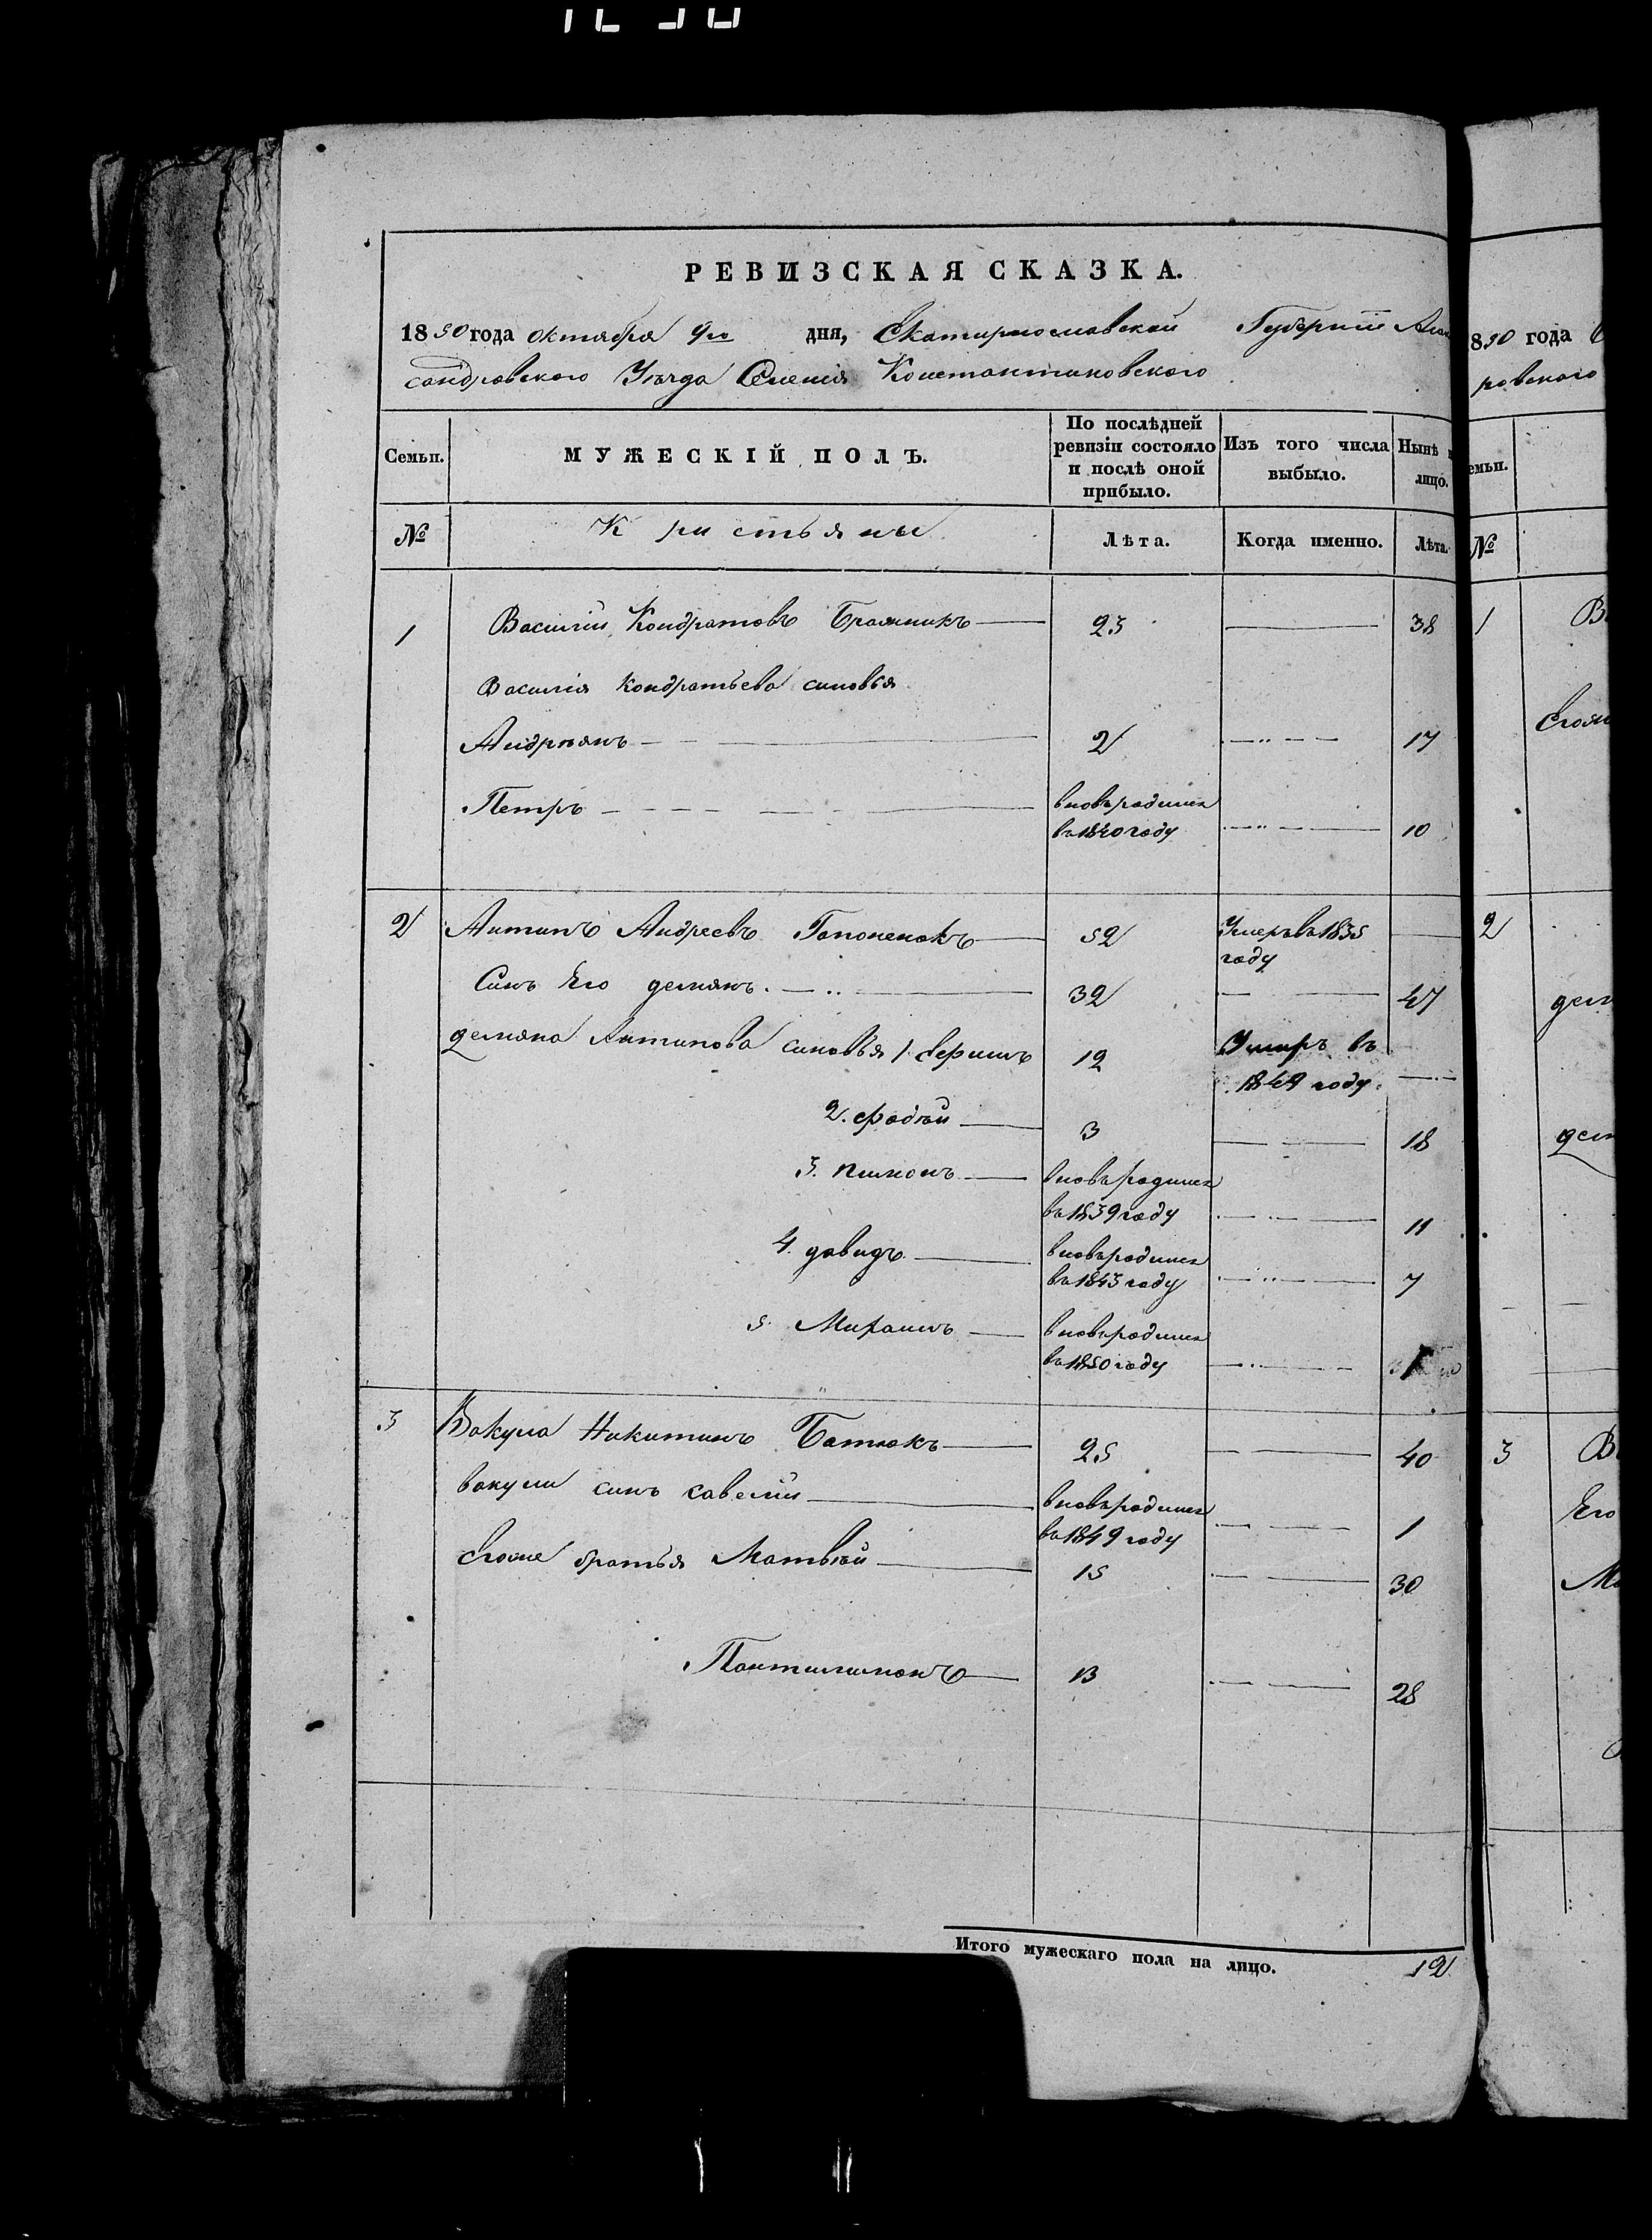 РЕВИЗСКАЯ СКАЗКА.
1850 года октября 9го дня, Екатеринославской Губернiи Алек
сандровского Уѣзда Селенiя Константиновского
Семьи. МУЖЕСКIЙ ПОЛЪ. По послѣдней ревизiи состояло и послѣ оной прибыло. Изъ того числа выбыло. Нынѣ лицо.
№ Кристьяны Лѣта. Когда именно. Лѣта.
1 Василiй Кондратовъ 23 38
Василiя Кондратьева сыновья
Андрiянъ 2 17
Петръ вновьродился
въ 1840 году 10
2 Антипъ Андреевъ Гапоненокъ 52 Умеръ въ 1835
году
Синъ Его демянъ 32 47
демяна Антипова сыновья 1. 12 Умеръ въ
1849 году
2. Фадѣй 3 18
3. пимонъ вновьродился
въ 1839 году 11
4. давидъ вновьродился
въ 1843 году 7
5. вновьродился
въ 1850 году
3 Вакула Никитинъ Батюкъ 25 40
вакули синъ савелiй вновьродился
въ 1849 году 1
Егоже братья Матвѣй 15 30
Пантилимонъ 13 28
Итого мужескаго пола на лицо. 12
850 года
ровского
емьи.
№
1
2
дем
дем
3
Его